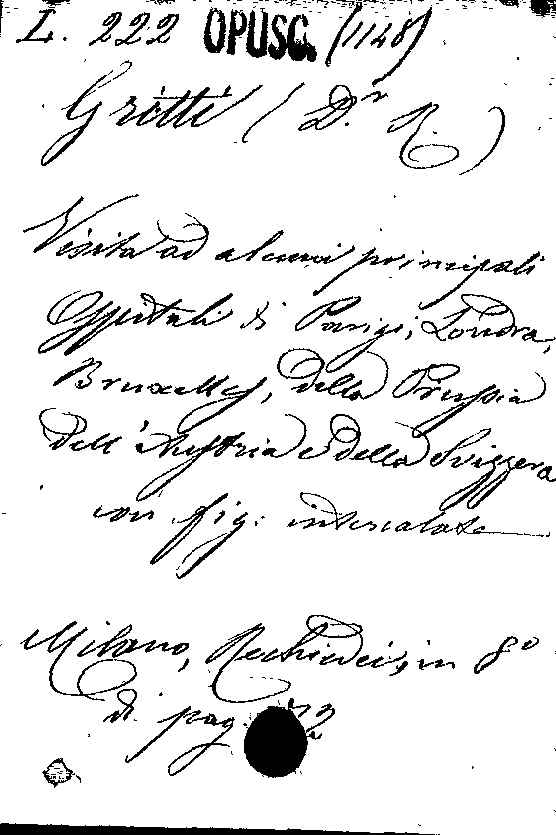 L. 222 OPUSC. (1148)
Gritti (D.r R.)
Visita ad alcuni principali
Ospitali di Parigi, Londra,
Bruxelles, della Prussia
dell'Austria e della Svizzera
con fig: intercalate
Milano, Rechiedei, in 8º
di pag.